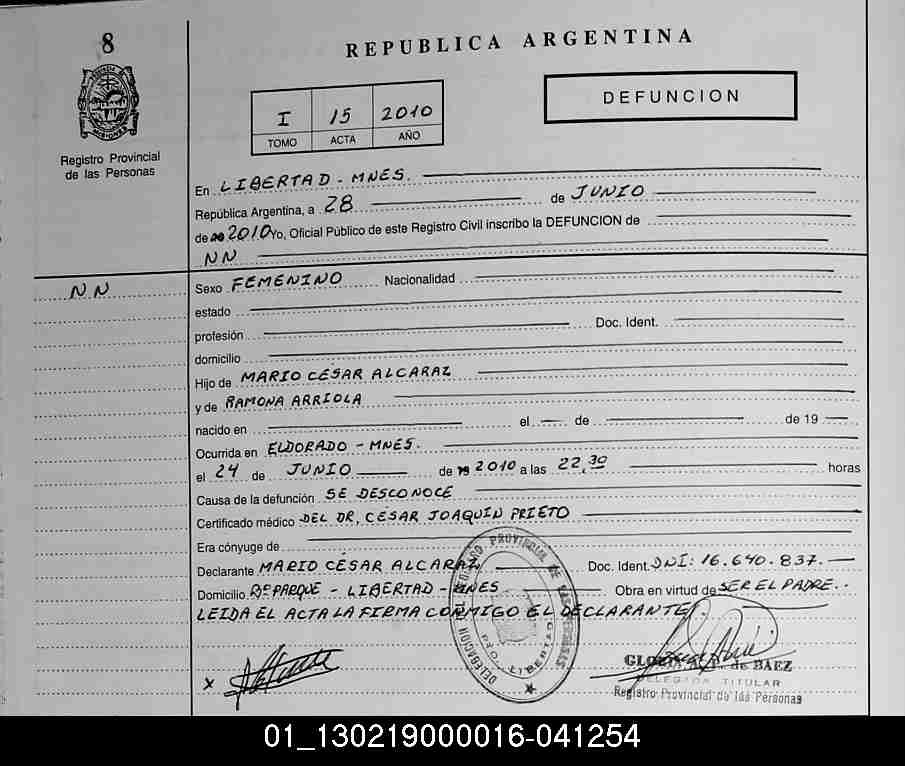 8
REPUBLICA ARGENTINA
DEFUNCION
I 15 2010
TOMO ACTA AÑO
PROVINCIA DE
MISIONES
Registro Provincial
de las Personas
En LIBERTAD - MNES.
República Argentina, a 28 de JUNIO
de 2010 Yo, Oficial Público de este Registro Civil inscribo la DEFUNCION de
NN
NN
Sexo FEMENINO Nacionalidad
estado
profesión Doc. Ident.
domicilio
Hijo de MARIO CÉSAR ALCARAZ
y de RAMONA ARRIOLA
nacido en el de de 19
Ocurrida en ELDORADO - MNES.
el 24 de JUNIO de 2010 a las 22,30 horas
Causa de la defunción SE DESCONOCE
Certificado médico DEL DR. CÉSAR JOAQUÍN PRIETO
Era cónyuge de
Declarante MARIO CÉSAR ALCARAZ Doc. Ident. DNI: 16.640.837.
Domicilio Bº PARQUE - LIBERTAD - MNES Obra en virtud de SER EL PADRE.
LEIDA EL ACTA LA FIRMA CONMIGO EL DECLARANTE
REGISTRO PROVINCIAL DE LAS PERSONAS
DELEGACION
LIBERTAD
x
de BAEZ
DELEGADA TITULAR
Registro Provincial de las Personas
01_130219000016-041254